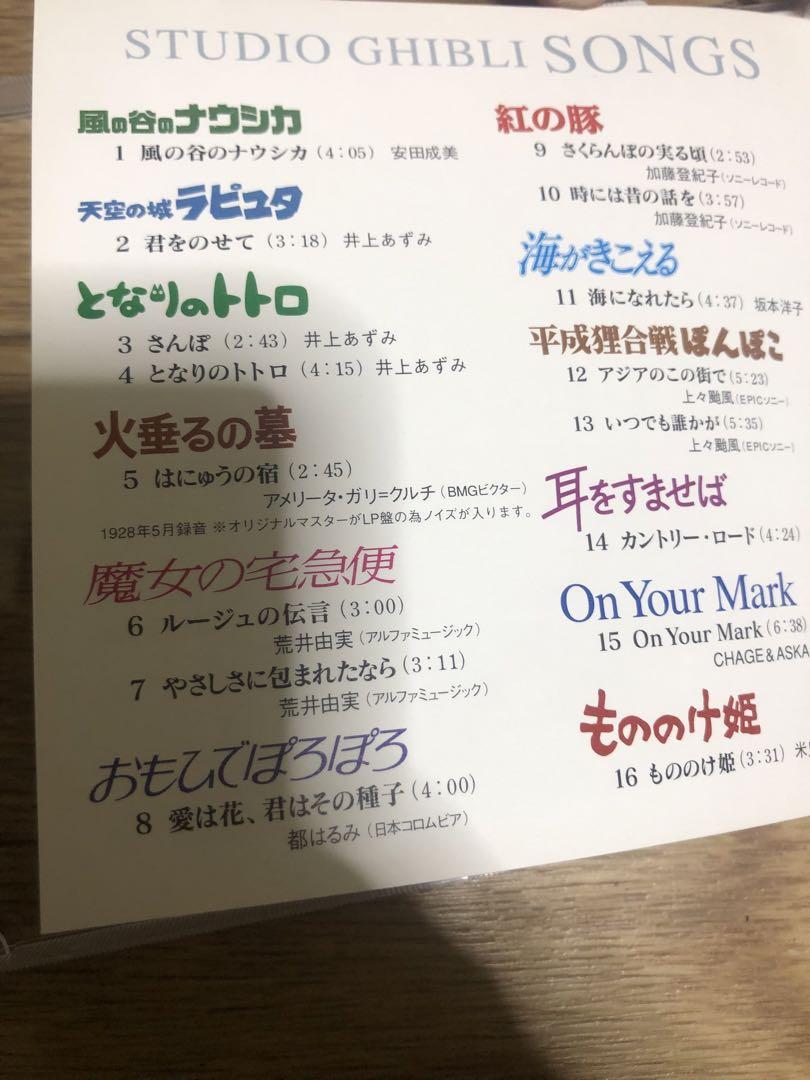 STUDIO GHIBLI SONGS
風の谷のナウシカ
1 風の谷のナウシカ (4:05) 安田成美
天空の城ラピュタ
2 君をのせて (3:18) 井上あずみ
となりのトトロ
3 さんぽ (2:43) 井上あずみ
4 となりのトトロ (4:15) 井上あずみ
火垂るの墓
5 はにゅうの宿 (2:45)
アメリータ・ガリ=クルチ (BMGビクター)
1928年5月録音 ※オリジナルマスターがLP盤の為ノイズが入ります。
魔女の宅急便
6 ルージュの伝言 (3:00)
荒井由実 (アルファミュージック)
7 やさしさに包まれたなら (3:11)
荒井由実 (アルファミュージック)
おもひでぽろぽろ
8 愛は花、君はその種子 (4:00)
都はるみ (日本コロムビア)
紅の豚
9 さくらんぼの実る頃 (2:53)
加藤登紀子 (ソニーレコード)
10 時には昔の話を (3:57)
加藤登紀子 (ソニーレコード)
海がきこえる
11 海になれたら (4:37) 坂本洋子
平成狸合戦ぽんぽこ
12 アジアのこの街で (5:23)
上々颱風 (EPICソニー)
13 いつでも誰かが (5:35)
上々颱風 (EPICソニー)
耳をすませば
14 カントリー・ロード (4:24)
On Your Mark
15 On Your Mark (6:38)
CHAGE&ASKA
もののけ姫
16 もののけ姫 (3:31) 米